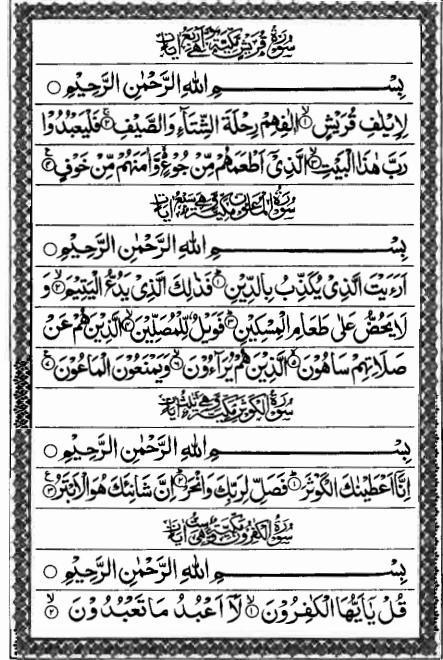 سُوْرَةُ قُرَيْشٍ مَكِّيَّةٌ وَّهِيَ اَرْبَعُ اٰيَاتٍ
بِسْمِ اللهِ الرَّحْمٰنِ الرَّحِيْمِ ○
لِاِيْلٰفِ قُرَيْشٍ ۙ١ اٖلٰفِهِمْ رِحْلَةَ الشِّتَآءِ وَالصَّيْفِ ۚ٢ فَلْيَعْبُدُوْا
رَبَّ هٰذَا الْبَيْتِ ۙ٣ الَّذِيْٓ اَطْعَمَهُمْ مِّنْ جُوْعٍ ۙ٥ وَّاٰمَنَهُمْ مِّنْ خَوْفٍ ٤
سُوْرَةُ الْمَاعُوْنِ مَكِّيَّةٌ وَّهِيَ سَبْعُ اٰيَاتٍ
بِسْمِ اللهِ الرَّحْمٰنِ الرَّحِيْمِ ○
اَرَءَيْتَ الَّذِيْ يُكَذِّبُ بِالدِّيْنِ ۭ١ فَذٰلِكَ الَّذِيْ يَدُعُّ الْيَتِيْمَ ۙ٢ وَ
لَا يَحُضُّ عَلٰى طَعَامِ الْمِسْكِيْنِ ۭ٣ فَوَيْلٌ لِّلْمُصَلِّيْنَ ۙ٤ الَّذِيْنَ هُمْ عَنْ
صَلَاتِهِمْ سَاهُوْنَ ۙ٥ الَّذِيْنَ هُمْ يُرَآءُوْنَ ۙ٦ وَيَمْنَعُوْنَ الْمَاعُوْنَ ٧
سُوْرَةُ الْكَوْثَرِ مَكِّيَّةٌ وَّهِيَ ثَلٰثُ اٰيَاتٍ
بِسْمِ اللهِ الرَّحْمٰنِ الرَّحِيْمِ ○
اِنَّآ اَعْطَيْنٰكَ الْكَوْثَرَ ۭ١ فَصَلِّ لِرَبِّكَ وَانْحَرْ ۭ٢ اِنَّ شَانِئَكَ هُوَ الْاَبْتَرُ ٣
سُوْرَةُ الْكٰفِرُوْنَ مَكِّيَّةٌ وَّهِيَ سِتُّ اٰيَاتٍ
بِسْمِ اللهِ الرَّحْمٰنِ الرَّحِيْمِ ○
قُلْ يٰٓاَيُّهَا الْكٰفِرُوْنَ ۙ١ لَآ اَعْبُدُ مَا تَعْبُدُوْنَ ۙ٢